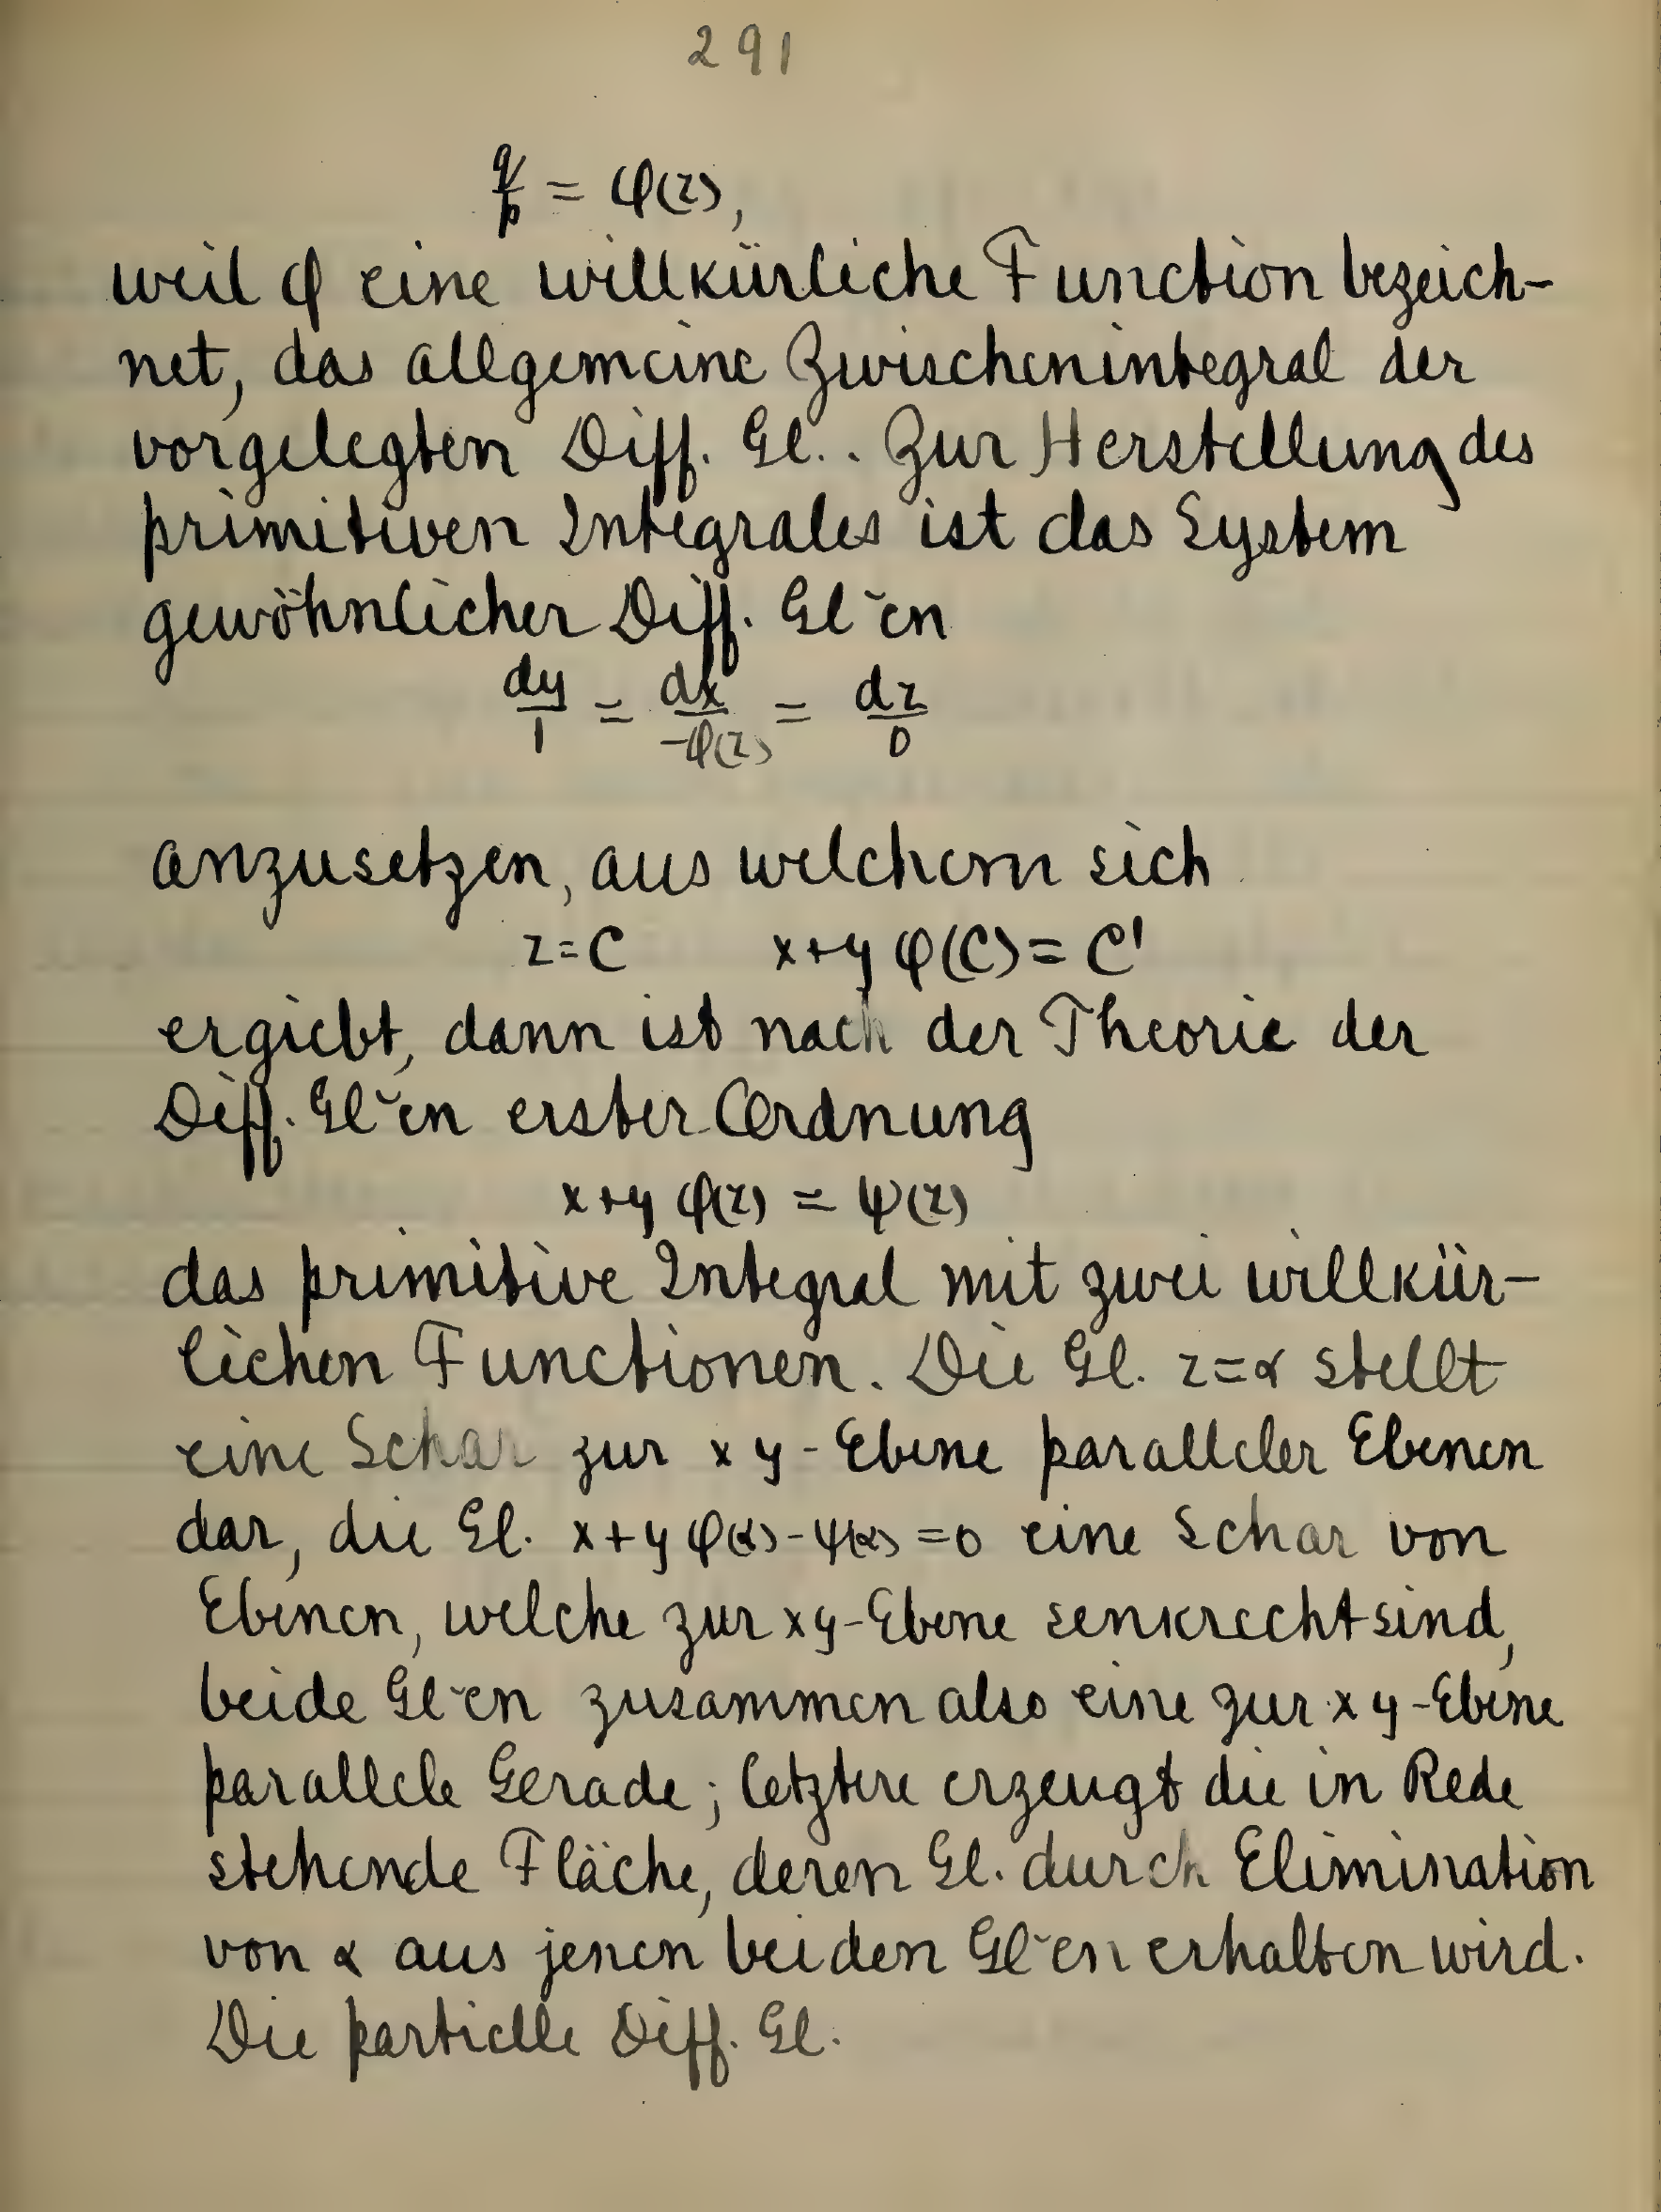 291
q/p = φ(z),
weil φ eine willkürliche Function bezeich-
net, das allgemeine Zwischenintegral der
vorgelegten Diff. Gl.. Zur Herstellung des
primitiven Integrales ist das System
gewöhnlicher Diff. Gl˘en
dy/1 = dx/-φ(z) = dz/0
anzusetzen, aus welchem sich
z=C x+y φ(C)= C'
ergiebt, dann ist nach der Theorie der
Diff. Gl˘en erster Ordnung
x+y φ(z) = ψ(z)
das primitive Integral mit zwei willkür-
lichen Functionen. Die Gl. z=α stellt
eine Schar zur xy-Ebene paralleler Ebenen
dar, die Gl. x+y φ(α)-ψ(α)=0 eine Schar von
Ebenen, welche zur xy-Ebene senkrecht sind,
beide Gl˘en zusammen also eine zur xy-Ebene
parallele Gerade; letztere erzeugt die in Rede
stehende Fläche, deren Gl. durch Elimination
von α aus jenen beiden Gl˘en erhalten wird.
Die partielle Diff. Gl.